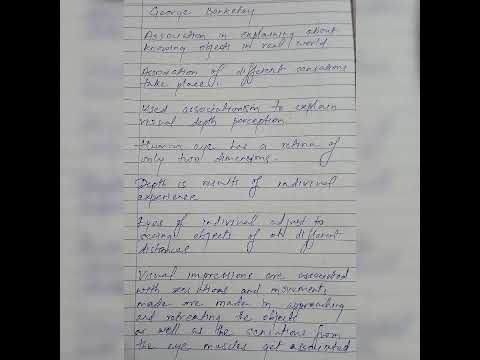 George Berkeley
Association in explaining about
knowing objects in real world
Association of different sensations
take place.
Used associationism to explain
visual depth perception
Human eye has a retina of
only two dimensions.
Depth is results of individual
experience
Eyes of individual adjust to
seeing objects of at different
distances
Visual impressions are associated
with sensations and movements
made are made in approaching
and retreating the objects
or well as the sensations from
the eye muscles get associated